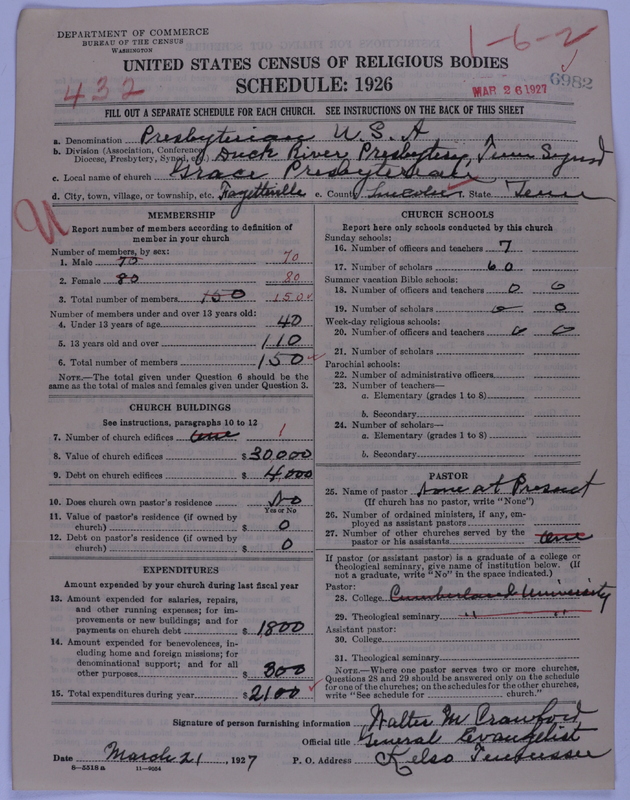 DEPARTMENT OF COMMERCE
BUREAU OF THE CENSUS
WASHINGTON
1-6-2
UNITED STATES CENSUS OF RELIGIOUS BODIES
432
SCHEDULE: 1926
MAR 26 1927
6982
FILL OUT A SEPARATE SCHEDULE FOR EACH CHURCH. SEE INSTRUCTIONS ON THE BACK OF THIS SHEET
a. Denomination Presbyterian U.S.A
b. Division (Association, Conference, Diocese, Presbytery, Synod, etc.) Duck River Presbytery, Tenn Synod
c. Local name of church Grace Presbyterian
d. City, town, village, or township, etc. Fayetteville e. County Lincoln f. State Tenn
MEMBERSHIP
Report number of members according to definition of
member in your church
Number of members, by sex:
1. Male 70 70
2. Female 80 80
3. Total number of members 150 150
Number of members under and over 13 years old:
4. Under 13 years of age 40
5. 13 years old and over 110
6. Total number of members 150
NOTE.—The total given under Question 6 should be
same as the total of males and females given under Question 3.
CHURCH BUILDINGS
See instructions, paragraphs 10 to 12
7. Number of church edifices one 1
8. Value of church edifices $30000
9. Debt on church edifices $4000
10. Does church own pastor's residence No
Yes or No
11. Value of pastor's residence (if owned by
church) $ 0
12. Debt on pastor's residence (if owned by
church) $ 0
EXPENDITURES
Amount expended by your church during last fiscal year
13. Amount expended for salaries, repairs,
and other running expenses; for im-
provements or new buildings; and for
payments on church debt $1800
14. Amount expended for benevolences, in-
cluding home and foreign missions; for
denominational support; and for all
other purposes $300
15. Total expenditures during year $2100
CHURCH SCHOOLS
Report here only schools conducted by this church
Sunday schools:
16. Number of officers and teachers 7
17. Number of scholars 60
Summer vacation Bible schools:
18. Number of officers and teachers 0 0
19. Number of scholars 0 0
Week-day religious schools:
20. Number of officers and teachers 0 0
21. Number of scholars
Parochial schools:
22. Number of administrative officers
23. Number of teachers—
a. Elementary (grades 1 to 8)
b. Secondary
24. Number of scholars—
a. Elementary (grades 1 to 8)
b. Secondary
PASTOR
25. Name of pastor None at Present
(If church has no pastor, write "None")
26. Number of ordained ministers, if any, em-
ployed as assistant pastors
27. Number of other churches served by the
pastor or his assistants one
If pastor (or assistant pastor) is a graduate of a college or
theological seminary, give name of institution below. (If
not a graduate, write "No" in the space indicated.)
Pastor:
28. College Cumberland University
29. Theological seminary " "
Assistant pastor:
30. College
31. Theological seminary
NOTE.—Where one pastor serves two or more churches,
Questions 28 and 29 should be answered only on the schedule
for one of the churches; on the schedules for the other churches,
write "See schedule for church."
Signature of person furnishing information Walter M Crawford
Official title General Evangelist
Date March 21, 1927 P. O. Address Kelso Tennessee
8-5518 a 11-9054